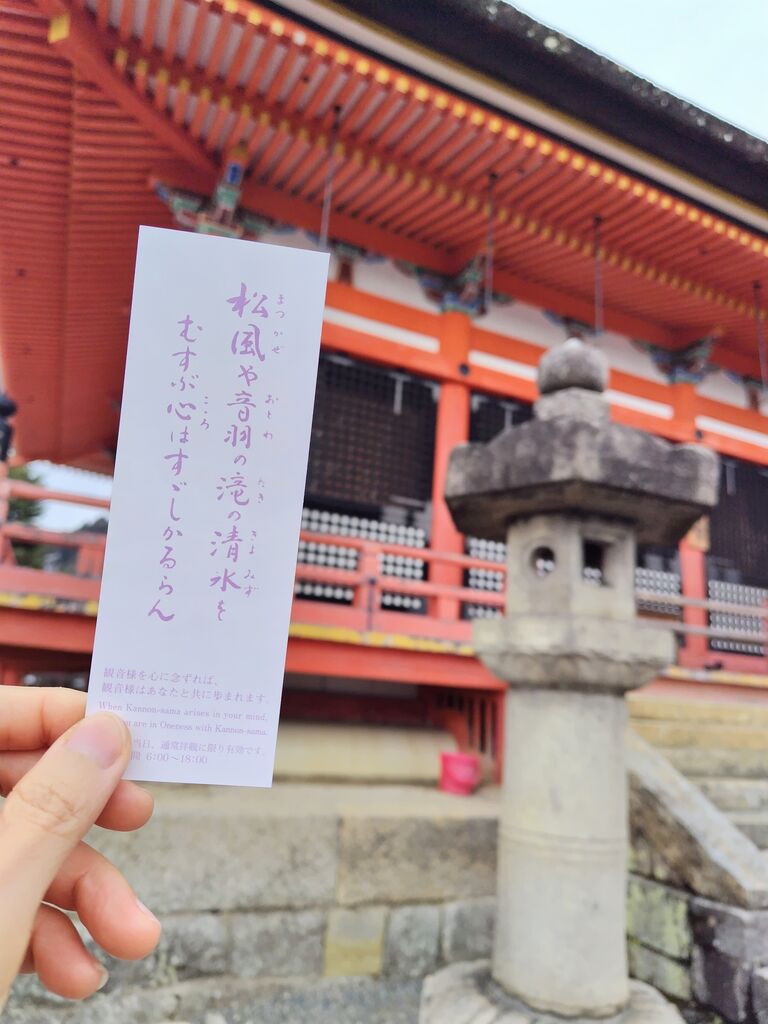 松風や音羽の滝の清水を
むすぶ心はすゞしかるらん
まつかぜ
おとわ
たき
きよみず
こころ
観音様を心に念ずれば、
観音様はあなたと共に歩まれます。
When Kannon-sama arises in your mind,
are in Oneness with Kannon-sama.
当日、通常拝観に限り有効です。
6:00〜18:00